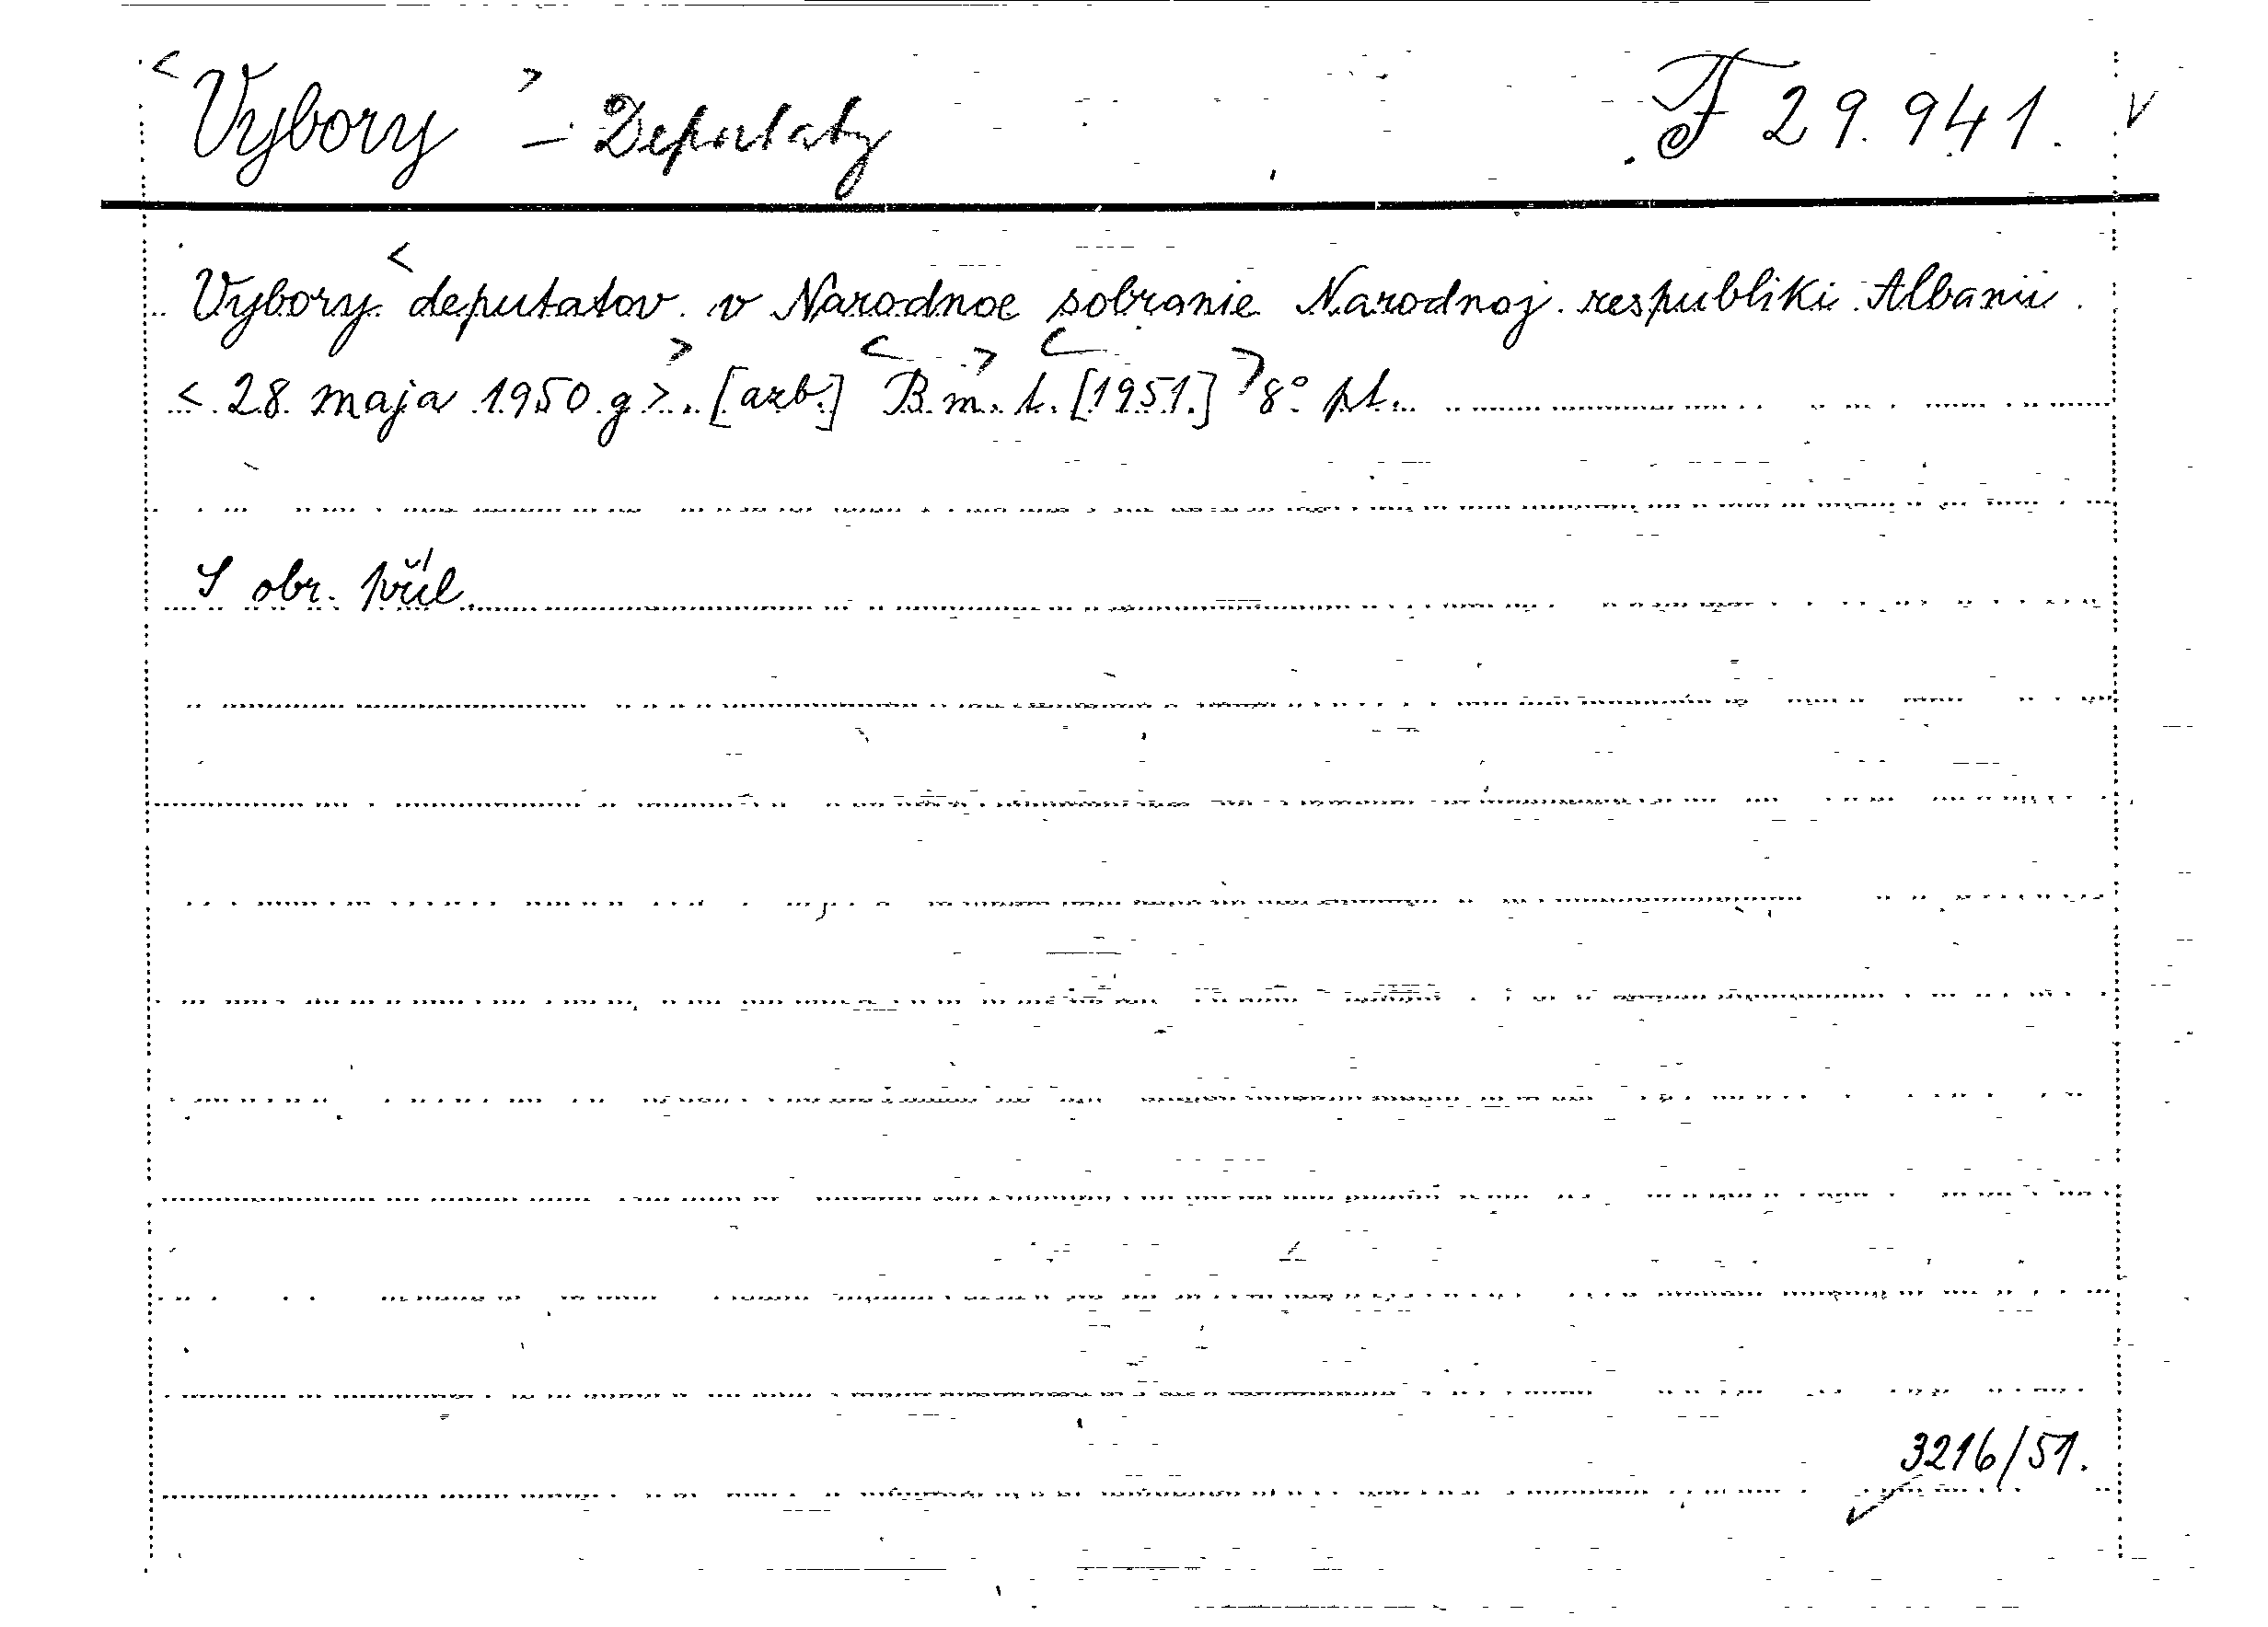 <Vybory> - Deputaty F 29.941. v
Vybory <deputatov v Narodnoe sobranie Narodnoj respubliki Albanii
<28 maja 1950 g>>. [azb.] <B. m.> t. <[1951.]> 8° pt.
S obr. příl.
3216/51.